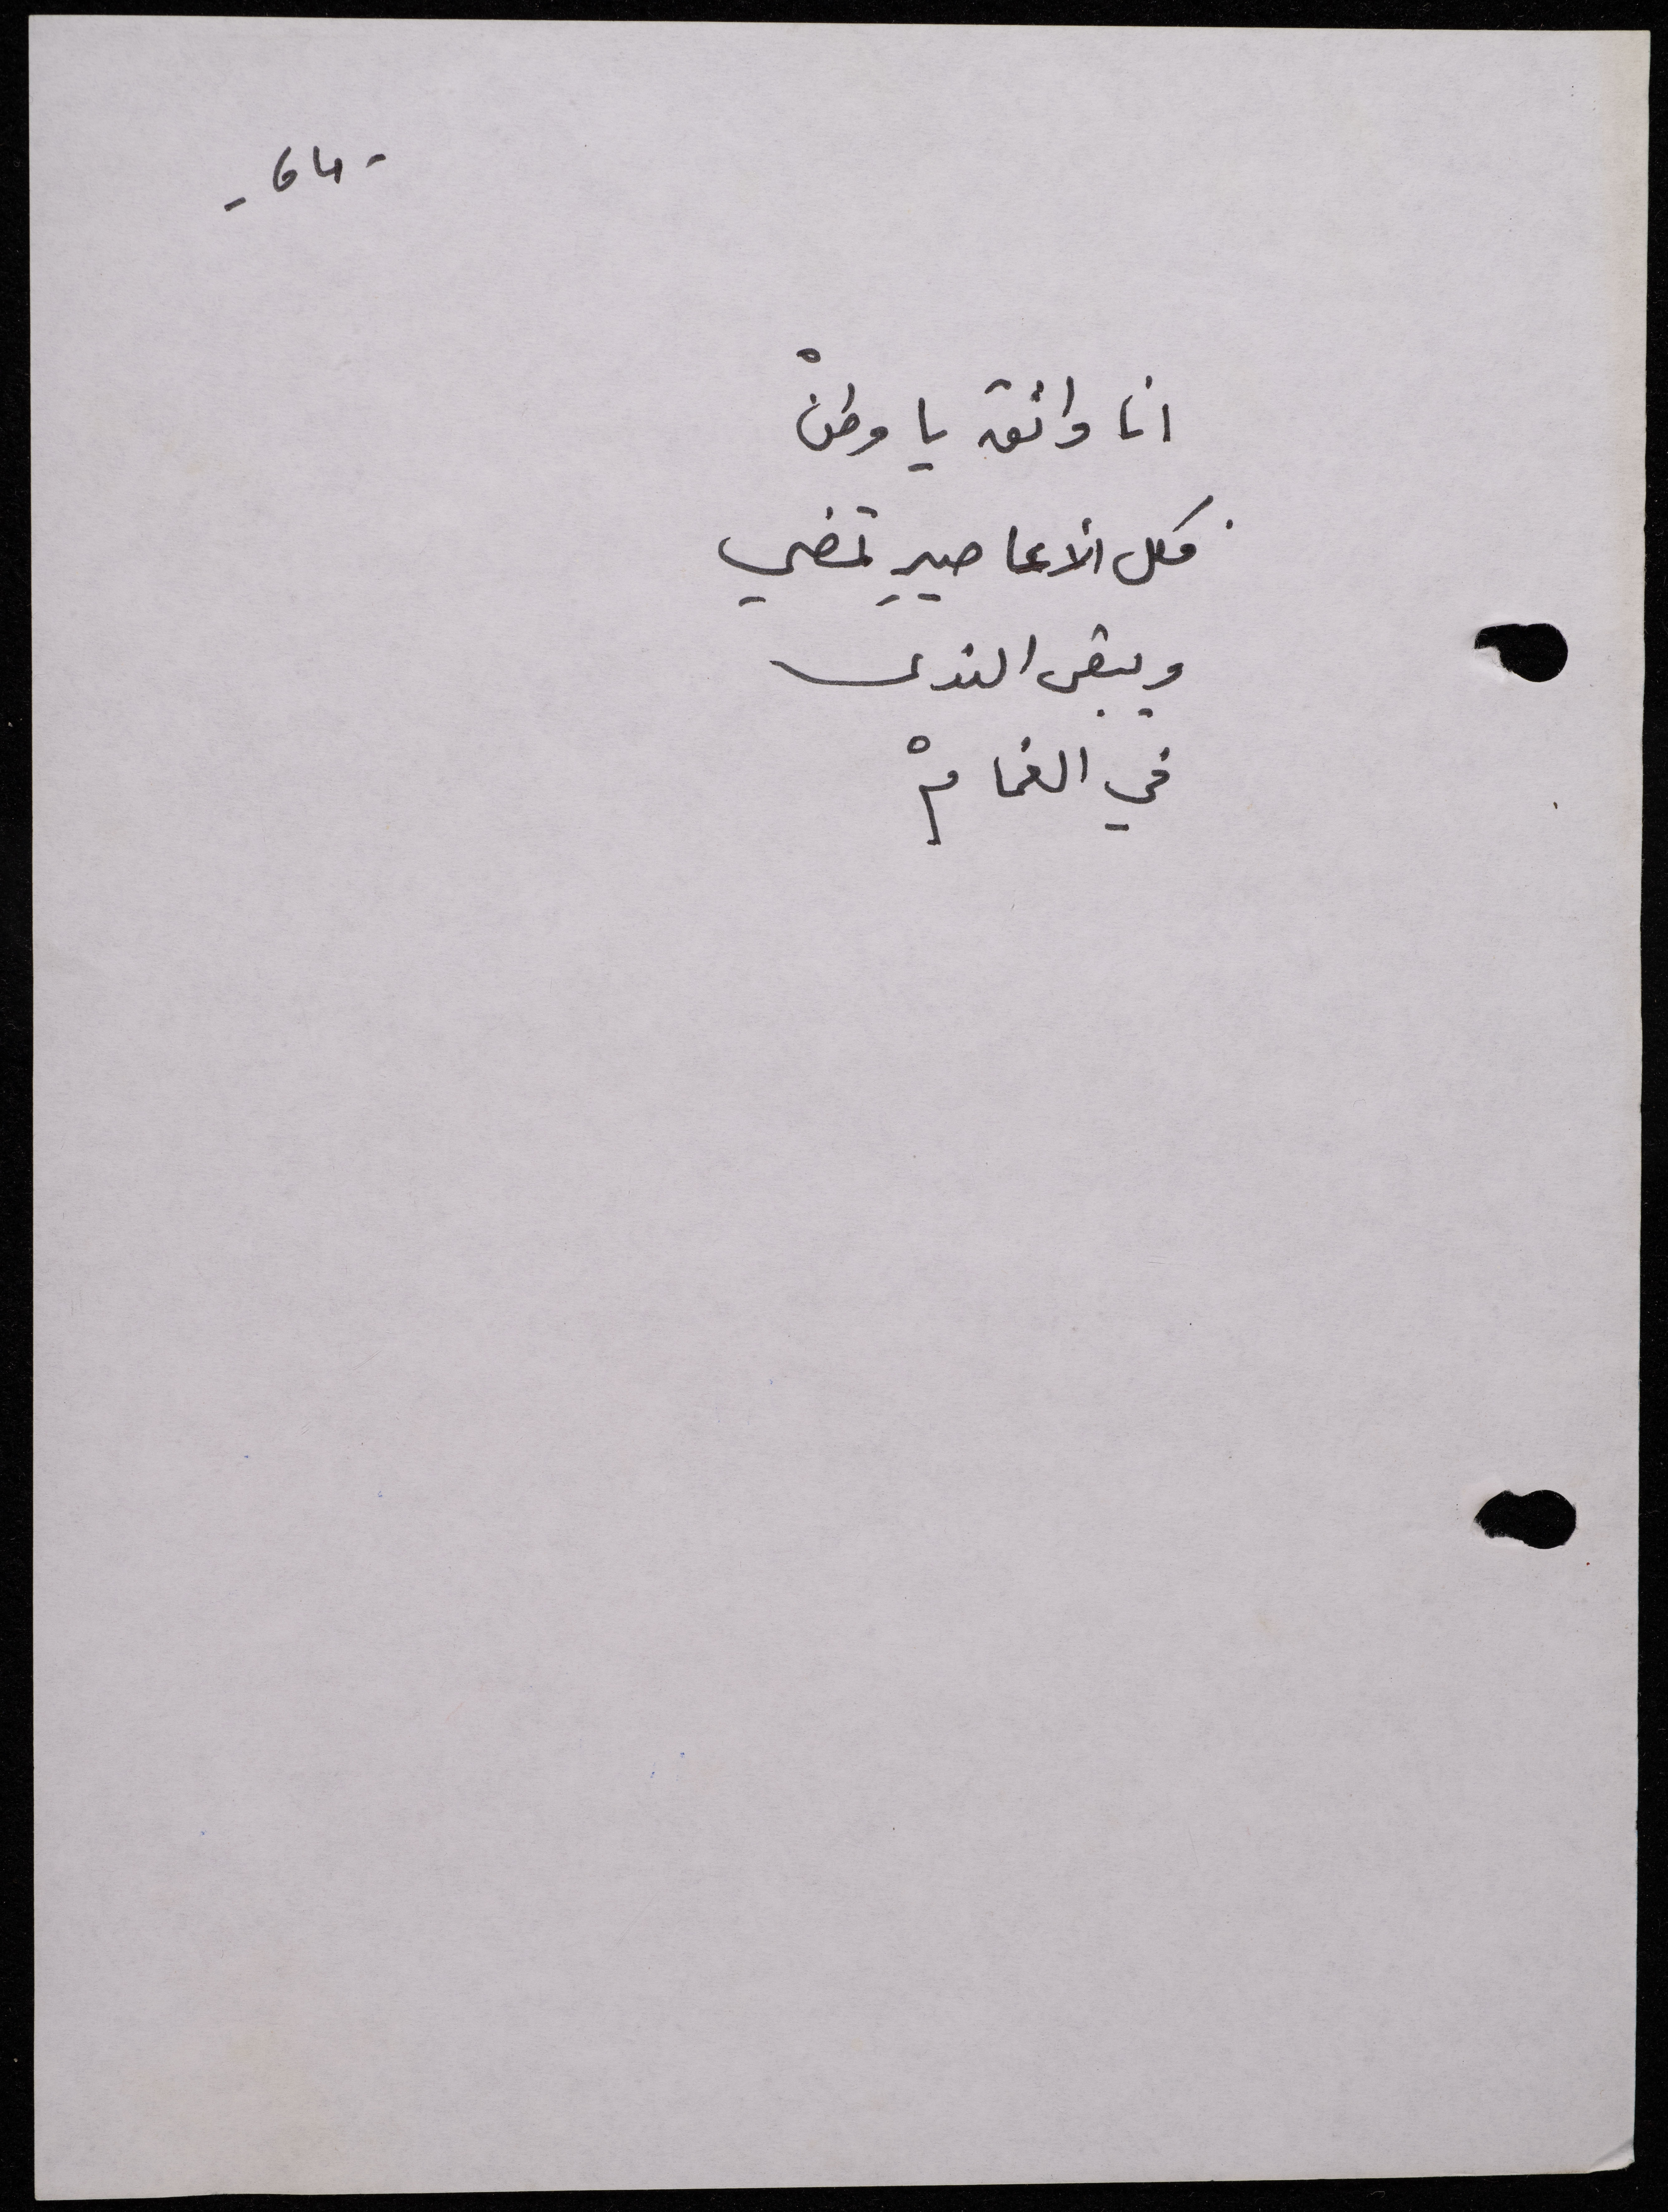 - 64 -
انا واثق يا وطنْ
فكل الاعاصيرِ تمضي
ويبقى الندى
في الغمامْ